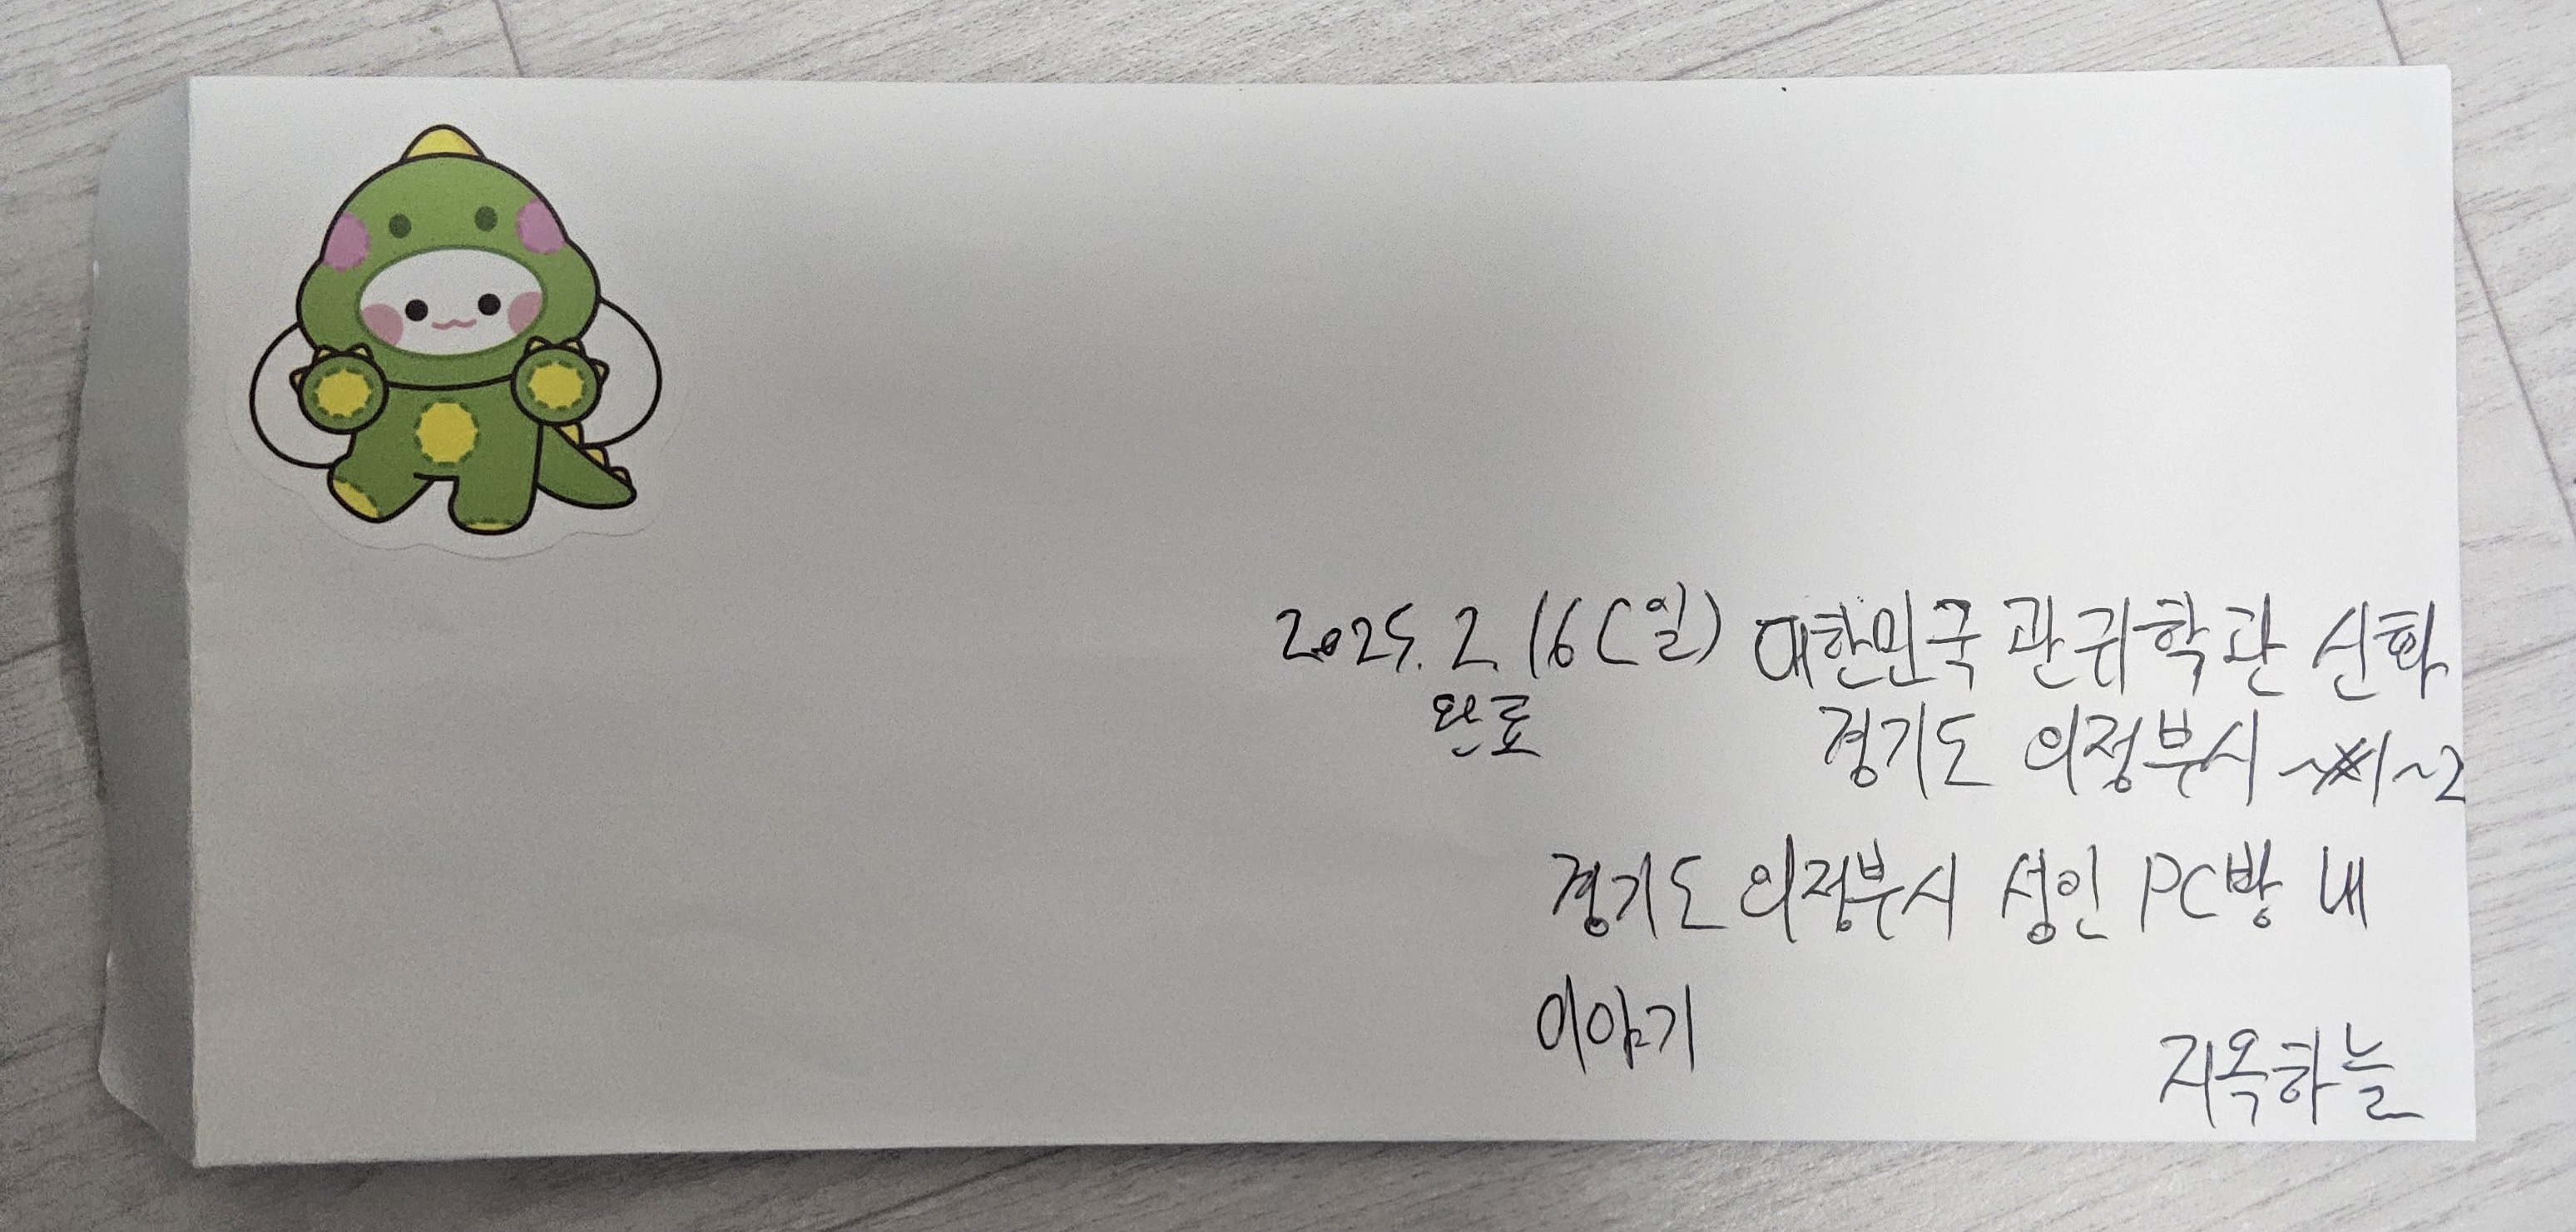 2025. 2. 16(일) 대한민국 관귀학관 신화
완료
경기도 의정부시 ~1~2
경기도 의정부시 성인 PC방 내
이야기
지옥하늘